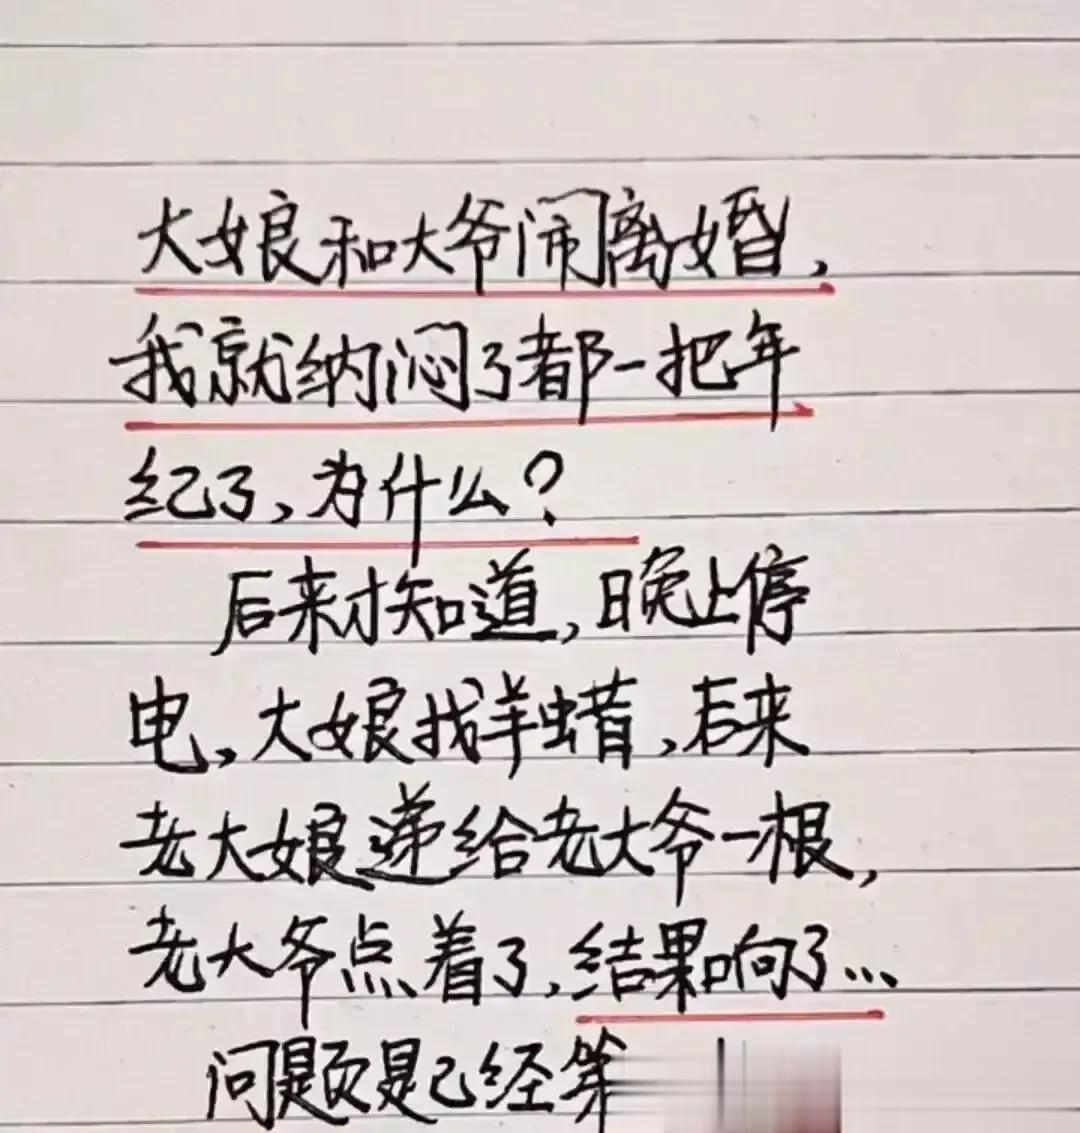 大娘和大爷闹离婚,
我就纳闷了都一把年
纪了,为什么?
后来才知道,晚上停
电,大娘找羊蜡,后来
老大娘递给老大爷一根,
老大爷点着了,结果响了...
问题是已经第